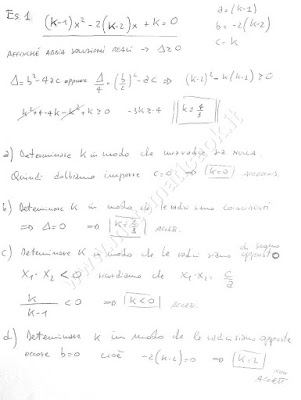 Es. 1 (K-1)x² - 2(K-2)x + K = 0
a = (K-1)
b = -2(K-2)
c = K
AFFINCHÉ ABBIA SOLUZIONI REALI → Δ ≥ 0
Δ = b² - 4ac oppure Δ/4 = (b/2)² - ac ⇒ (K-2)² - K(K-1) ≥ 0
K² + 4 - 4K - K² + K ≥ 0 -3K ≥ -4 K ≤ 4/3
a) Determinare K in modo che una radice sia NULLA.
Quindi dobbiamo imporre c = 0 ⇒ K = 0 ACCETT.
b) Determinare K in modo che le radici siano coincidenti
⇒ Δ = 0 ⇒ K = 4/3 ACCET.
c) Determinare K in modo che le radici siano di segno opposto
X₁ · X₂ < 0 ricordiamo che X₁ · X₂ = c/a
K/(K-1) < 0 ⇒ K < 0 ACCET.
d) Determinare K in modo che le radici siano opposte
occorre b = 0 cioè -2(K-2) = 0 ⇒ K = 2
non
ACCETT